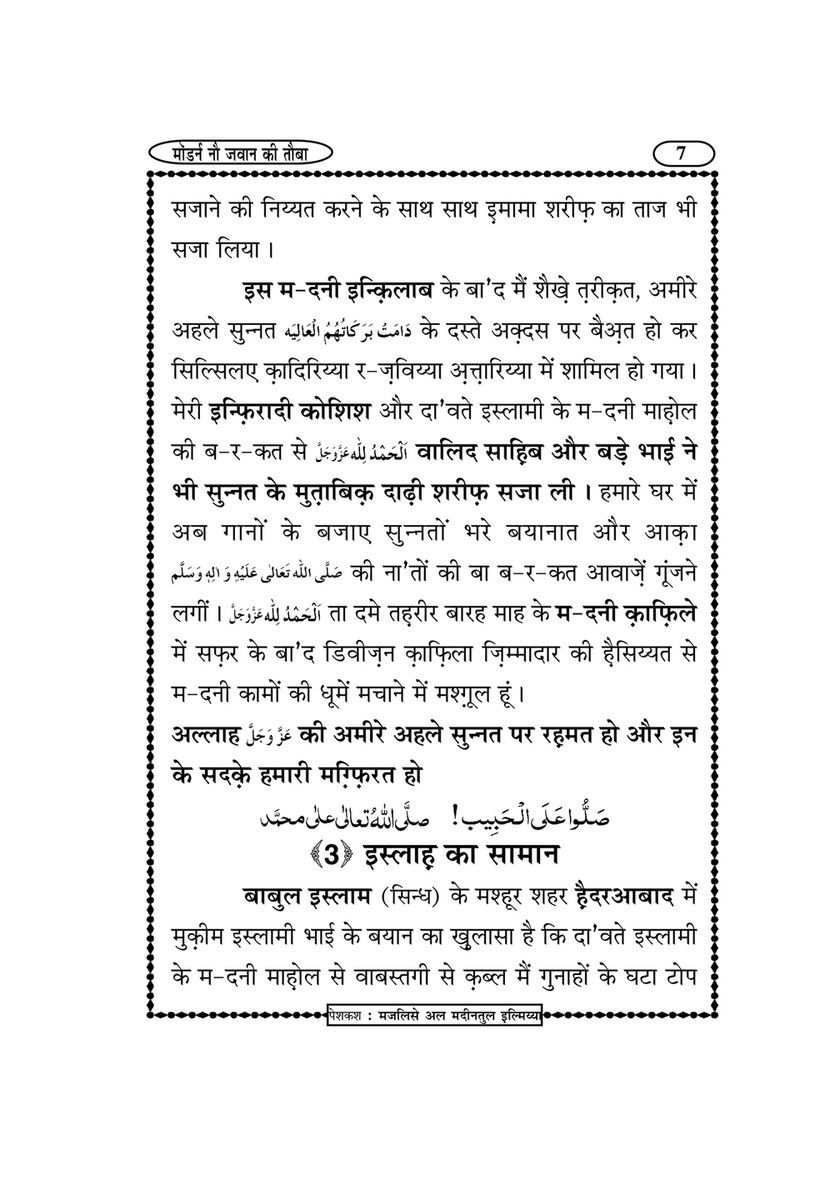 मॉडर्न नौ जवान की तौबा
7
सजाने की निय्यत करने के साथ साथ इ़मामा शरीफ़ का ताज भी
सजा लिया ।
इस म-दनी इन्क़िलाब के बा'द मैं शैख़े त़रीक़त, अमीरे
अहले सुन्नत دَامَتْ بَرَكَاتُهُمُ الْعَالِيَه के दस्ते अक़्दस पर बैअ़त हो कर
सिल्सिलए क़ादिरिय्या र-ज़विय्या अ़त्त़ारिय्या में शामिल हो गया ।
मेरी इन्फ़िरादी कोशिश और दा'वते इस्लामी के म-दनी माह़ोल
की ब-र-कत से اَلْحَمْدُ لِلّٰه عَزَّوَجَلَّ वालिद साह़िब और बड़े भाई ने
भी सुन्नत के मुत़ाबिक़ दाढ़ी शरीफ़ सजा ली । हमारे घर में
अब गानों के बजाए सुन्नतों भरे बयानात और आक़ा
صَلَّى الله تَعَالٰى عَلَيْهِ وَاٰلِهٖ وَسَلَّم की ना'तों की बा ब-र-कत आवाज़ें गूंजने
लगीं । اَلْحَمْدُ لِلّٰه عَزَّوَجَلَّ ता दमे तह़रीर बारह माह के म-दनी क़ाफ़िले
में सफ़र के बा'द डिवीज़न क़ाफ़िला ज़िम्मादार की ह़ैसिय्यत से
म-दनी कामों की धूमें मचाने में मश्ग़ूल हूं ।
अल्लाह عَزَّ وَجَلَّ की अमीरे अहले सुन्नत पर रह़मत हो और इन
के सदक़े हमारी मग़्फ़िरत हो
صَلُّوا عَلَى الْحَبِيب! صلَّى اللهُ تعالٰى علٰى محمَّد
﴾3﴿ इस्लाह़ का सामान
बाबुल इस्लाम (सिन्ध) के मश्हूर शहर ह़ैदरआबाद में
मुक़ीम इस्लामी भाई के बयान का ख़ुलासा है कि दा'वते इस्लामी
के म-दनी माह़ोल से वाबस्तगी से क़ब्ल मैं गुनाहों के घटा टोप
पेशकश : मजलिसे अल मदीनतुल इल्मिय्या